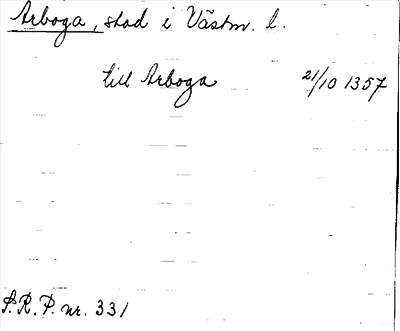 Arboga, stad i Västm. l.
till Arboga 21/10 1357
S.R.P. nr. 331